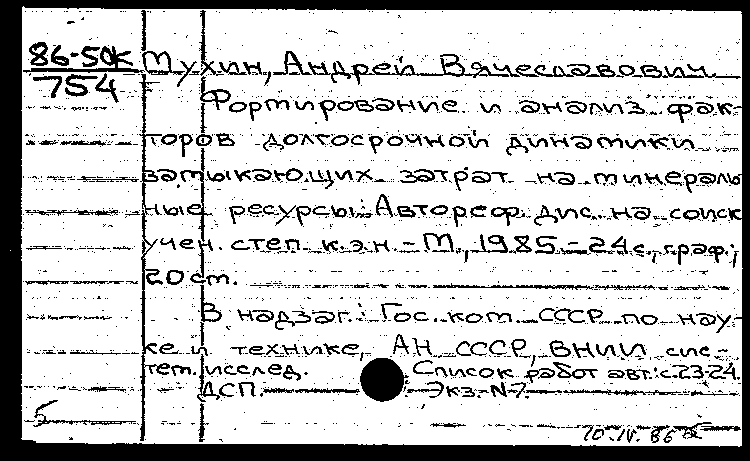 86-50к Мухин, Андрей Вячеславович.
754
Формирование и анализ фак-
торов долгосрочной динамики
замыкающих затрат на минераль
ные ресурсы: Автореф. дис. на соиск
учен. степ. к.э.н. - М., 1985. - 24 с., граф.;
20 см.
В надзаг.: Гос. ком. СССР по нау-
ке и технике, АН СССР, ВНИИ сис-
тем. исслед. Список работ авт.: с. 23-24.
ДСП. Экз. N 7.
5
10.IV.86